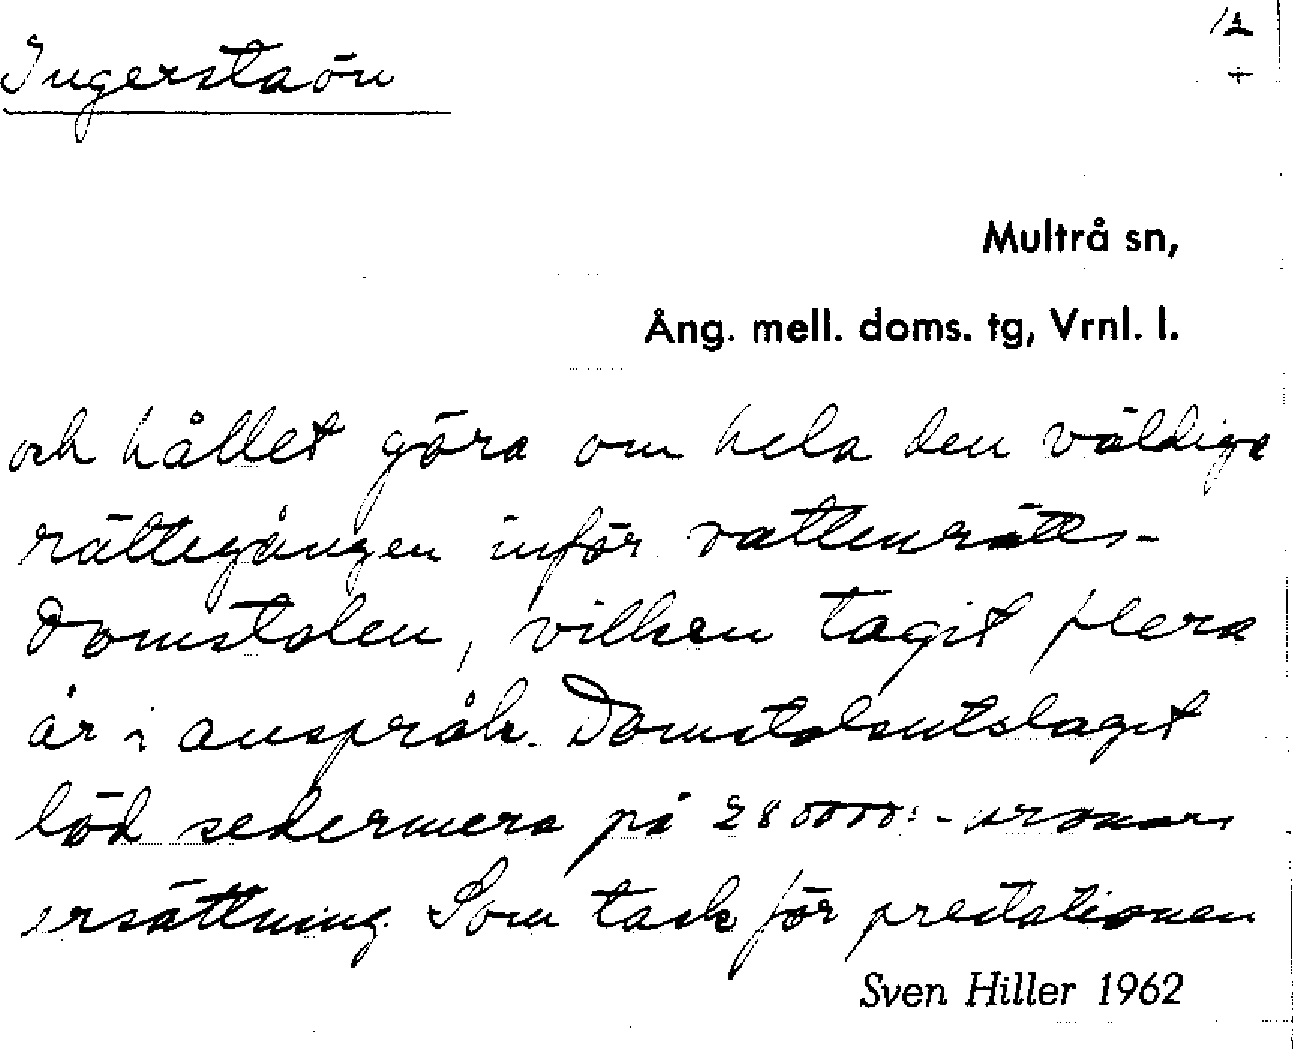 12
Ingerstaön
+
Multrå sn,
Ång. mell. doms. tg, Vrnl. l.
och hållet göra om hela den väldiga
rättegången inför vattenrätts-
domstolen, vilken tagit flera
år i anspråk. Domstolsutslaget
löd sedermera på 280000:- kronors
ersättning. Som tack för prestationen
Sven Hiller 1962